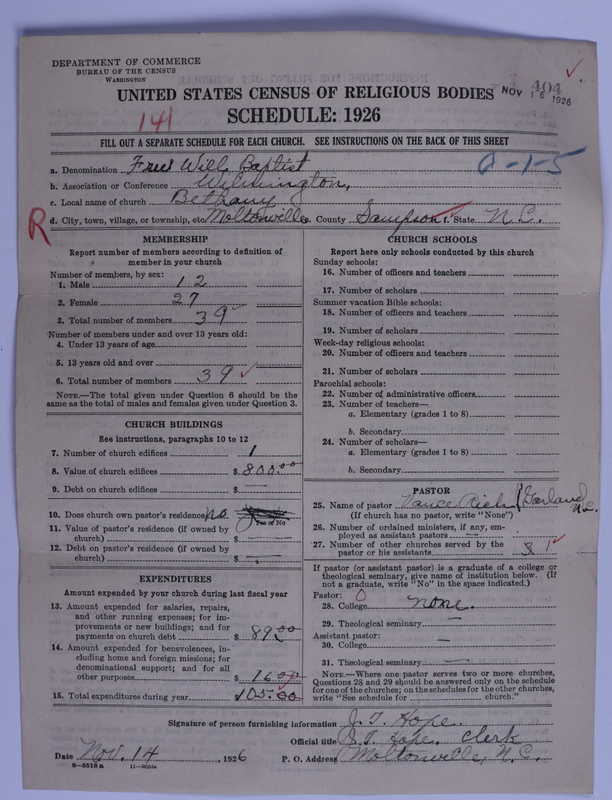 DEPARTMENT OF COMMERCE
BUREAU OF THE CENSUS
WASHINGTON
404
NOV 16 1926
UNITED STATES CENSUS OF RELIGIOUS BODIES
141
SCHEDULE: 1926
FILL OUT A SEPARATE SCHEDULE FOR EACH CHURCH. SEE INSTRUCTIONS ON THE BACK OF THIS SHEET
a. Denomination Free Will Baptist
b. Association or Conference Wilmington,
c. Local name of church Bethany
R
d. City, town, village, or township, etc. Moltonville e. County Sampson f. State N.C.
MEMBERSHIP
Report number of members according to definition of
member in your church
Number of members, by sex:
1. Male 12
2. Female 27
3. Total number of members 39
Number of members under and over 13 years old:
4. Under 13 years of age
5. 13 years old and over
6. Total number of members 39
NOTE.—The total given under Question 6 should be
same as the total of males and females given under Question 3.
CHURCH BUILDINGS
See instructions, paragraphs 10 to 12
7. Number of church edifices 1
8. Value of church edifices $ 800.00
9. Debt on church edifices $ —
10. Does church own pastor's residence? no
Yes or No
11. Value of pastor's residence (if owned by
church) $ —
12. Debt on pastor's residence (if owned by
church) $ —
EXPENDITURES
Amount expended by your church during last fiscal year
13. Amount expended for salaries, repairs,
and other running expenses; for im-
provements or new buildings; and for
payments on church debt $ 89.00
14. Amount expended for benevolences, in-
cluding home and foreign missions; for
denominational support; and for all
other purposes $ 16.00
15. Total expenditures during year $105.00
CHURCH SCHOOLS
Report here only schools conducted by this church
Sunday schools:
16. Number of officers and teachers
17. Number of scholars
Summer vacation Bible schools:
18. Number of officers and teachers
19. Number of scholars
Week-day religious schools:
20. Number of officers and teachers
21. Number of scholars
Parochial schools:
22. Number of administrative officers
23. Number of teachers—
a. Elementary (grades 1 to 8)
b. Secondary
24. Number of scholars—
a. Elementary (grades 1 to 8)
b. Secondary
PASTOR
25. Name of pastor Vance Rich Garland N.C.
(If church has no pastor, write "None")
26. Number of ordained ministers, if any, em-
ployed as assistant pastors —
27. Number of other churches served by the
pastor or his assistants 3
If pastor (or assistant pastor) is a graduate of a college or
theological seminary, give name of institution below. (If
not a graduate, write "No" in the space indicated.)
Pastor: 0
28. College none.
29. Theological seminary —
Assistant pastor:
30. College —
31. Theological seminary —
NOTE.—Where one pastor serves two or more churches,
Questions 28 and 29 should be answered only on the schedule
for one of the churches; on the schedules for the other churches,
write "See schedule for church."
Signature of person furnishing information J. T. Hope.
Official title J. T. Hope. Clerk
Date Nov. 14, 1926 P. O. Address Moltonville, N.C.
8—5518 a 11—9034a